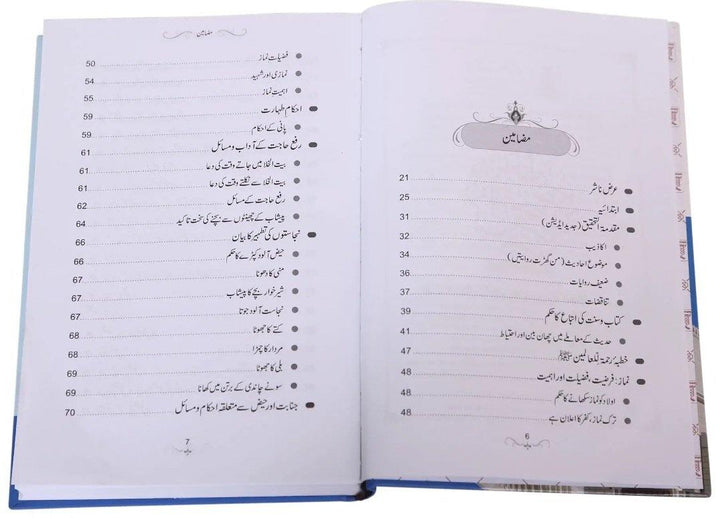 مضامین
عرض ناشر 21
ابتدائیہ 25
مقدمۃ التحقیق (جدید ایڈیشن) 31
اکاذیب
موضوع احادیث (من گھڑت روایتیں)
ضعیف روایات
تناقضات 37
کتاب و سنت کی اتباع کا حکم 39
حدیث کے معاملے میں چھان بین اور احتیاط 41
خطبہ رحمۃ للعالمین ﷺ 47
نماز: فرضیت، فضیلت اور اہمیت 48
اولاد کو نماز سکھانے کا حکم 48
ترک نماز، کفر کا اعلان ہے 48
6
مضامین
فضیلت نماز 50
نمازی اور شہید 54
اہمیت نماز 55
احکام طہارت 59
پانی کے احکام 59
رفع حاجت کے آداب و مسائل 61
بیت الخلا میں جاتے وقت کی دعا 61
بیت الخلا سے نکلتے وقت کی دعا 61
رفع حاجت کے مسائل 62
پیشاب کے چھینٹوں سے بچنے کی سخت تاکید 64
نجاستوں کی تطہیر کا بیان 66
حیض آلود کپڑے کا حکم 66
منی کا دھونا 67
شیر خوار بچے کا پیشاب 67
نجاست آلود جوتا 67
کتے کا جھوٹا 68
مردار کا چمڑا 68
بلی کا جھوٹا 69
سونے چاندی کے برتن میں کھانا 69
جنابت اور حیض سے متعلقہ احکام و مسائل 70
7